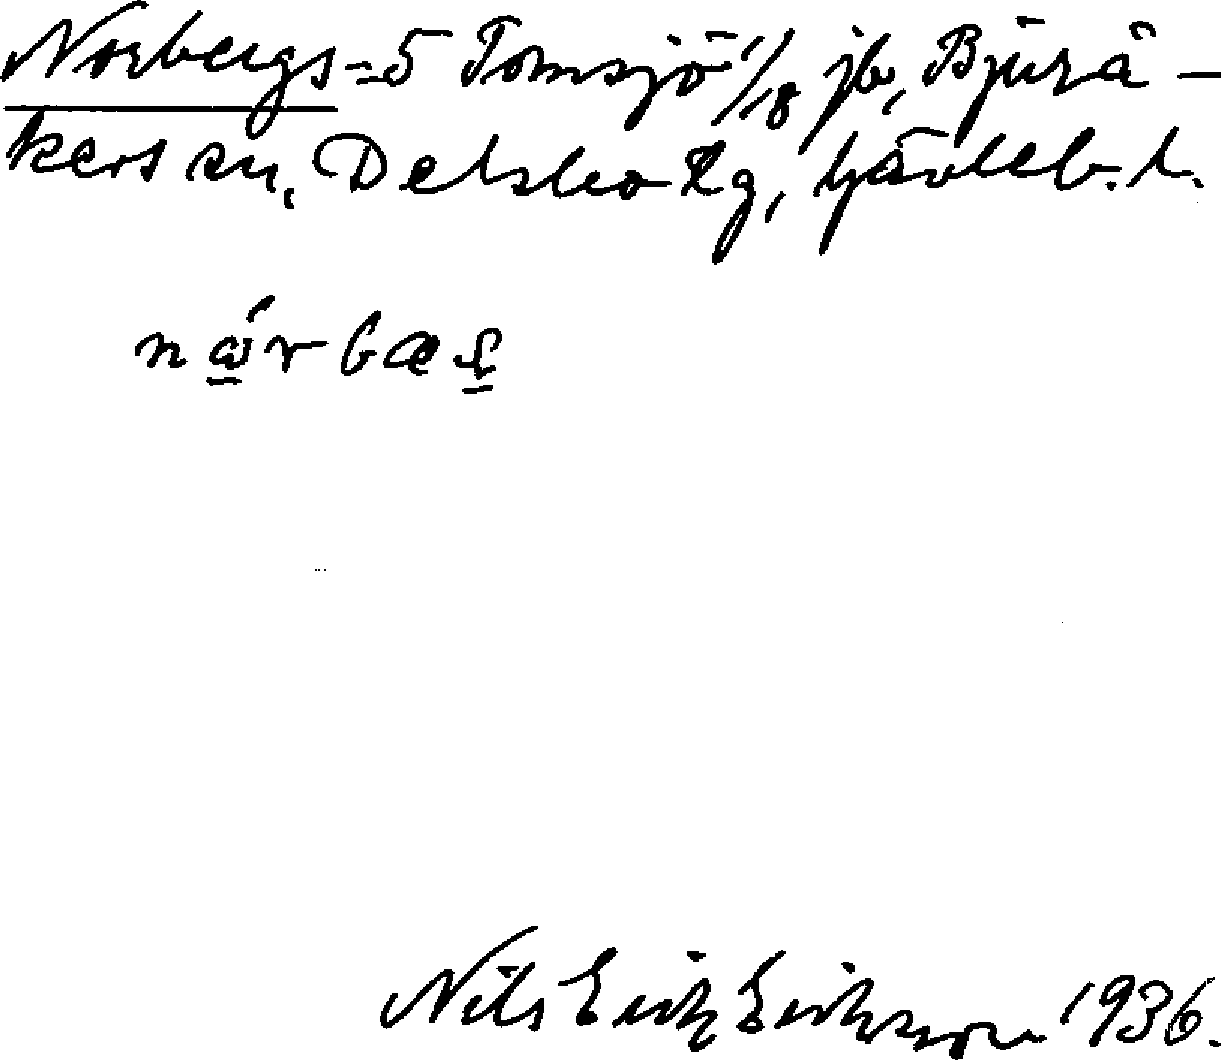 Norbergs = 5 Tomsjö 1/18 jb, Bjurå-
kers sn, Delsbo tg, Gävleb. l.
nárbæ
Nils Erik Erikson 1936.